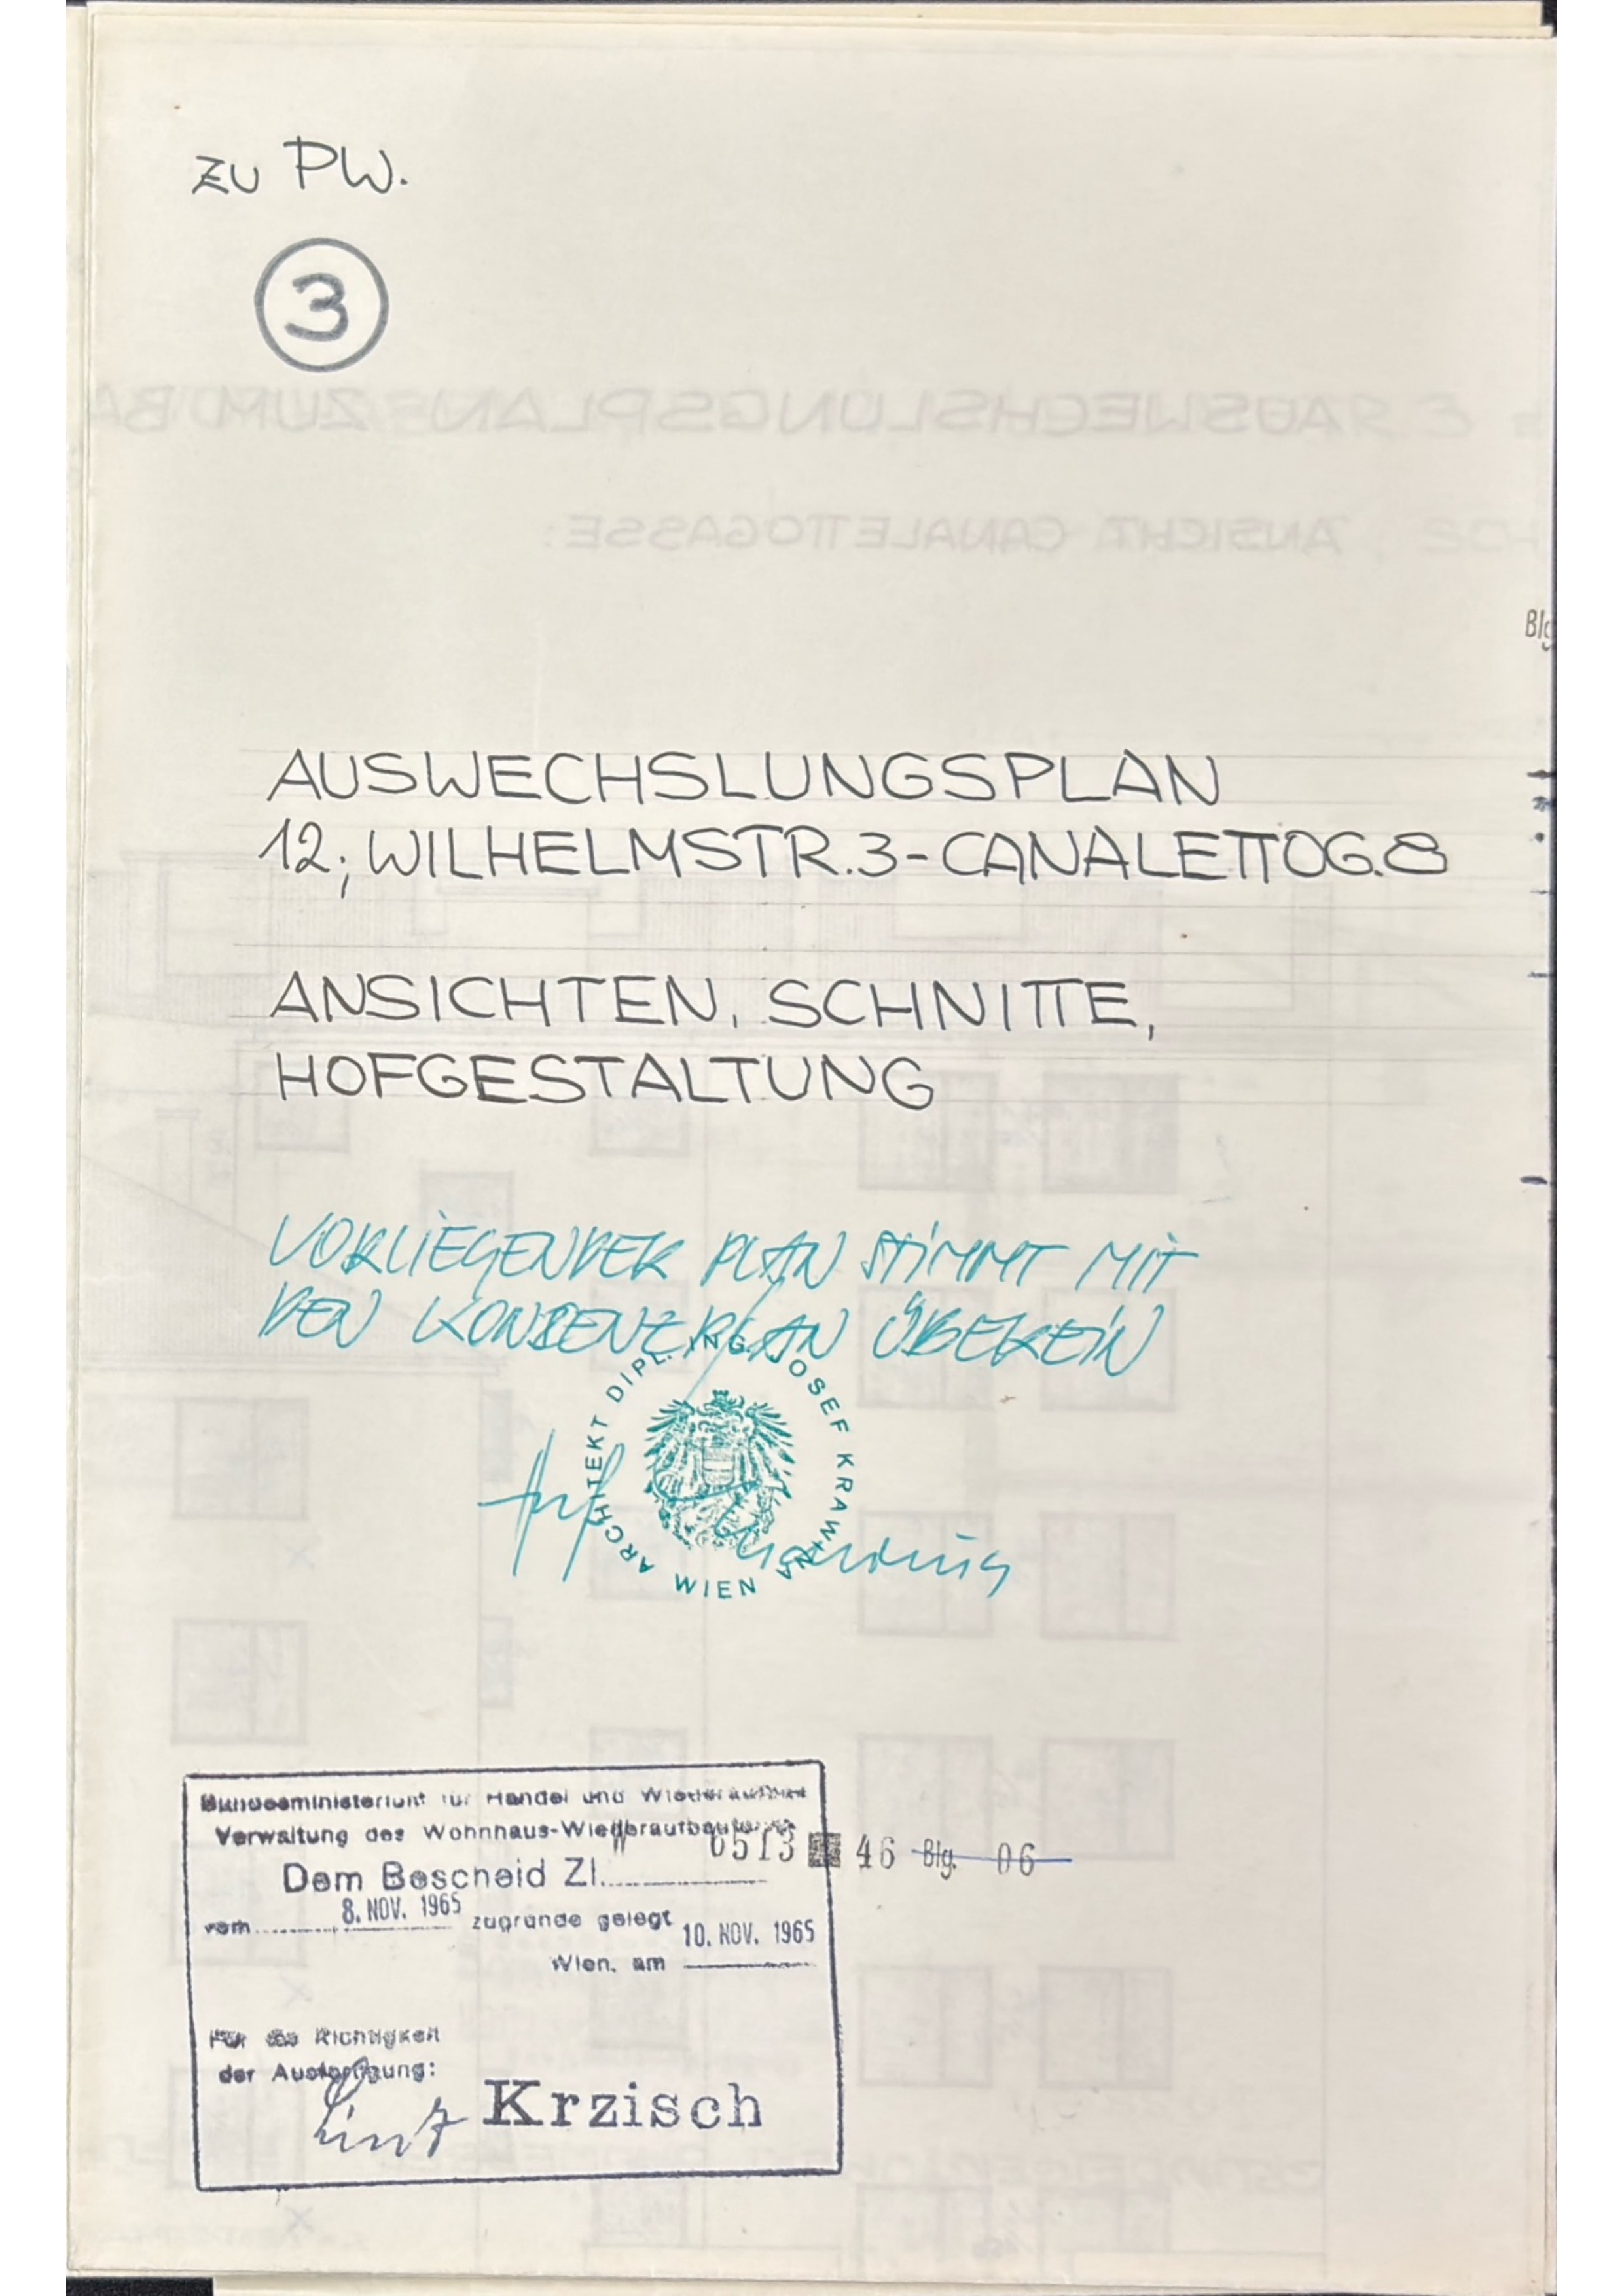 ZU PW.
3
Blg
AUSWECHSLUNGSPLAN
12; WILHELMSTR.3-CANALETTOG.8
ANSICHTEN, SCHNITTE,
HOFGESTALTUNG
VORLIEGENDER PLAN STIMMT MIT
DEN KONSENZPLAN ÜBEREIN
ARCHITEKT DIPL. ING. JOSEF KRAWINA
WIEN
Bundesministerium für Handel und Wiederaufbau
Verwaltung des Wohnhaus-Wiederaufbaufonds
0513 46 Blg. 06
Dem Bescheid Zl.
vom 8. NOV. 1965 zugrunde gelegt
Wien, am 10. NOV. 1965
Für die Richtigkeit
der Ausfertigung:
Krzisch